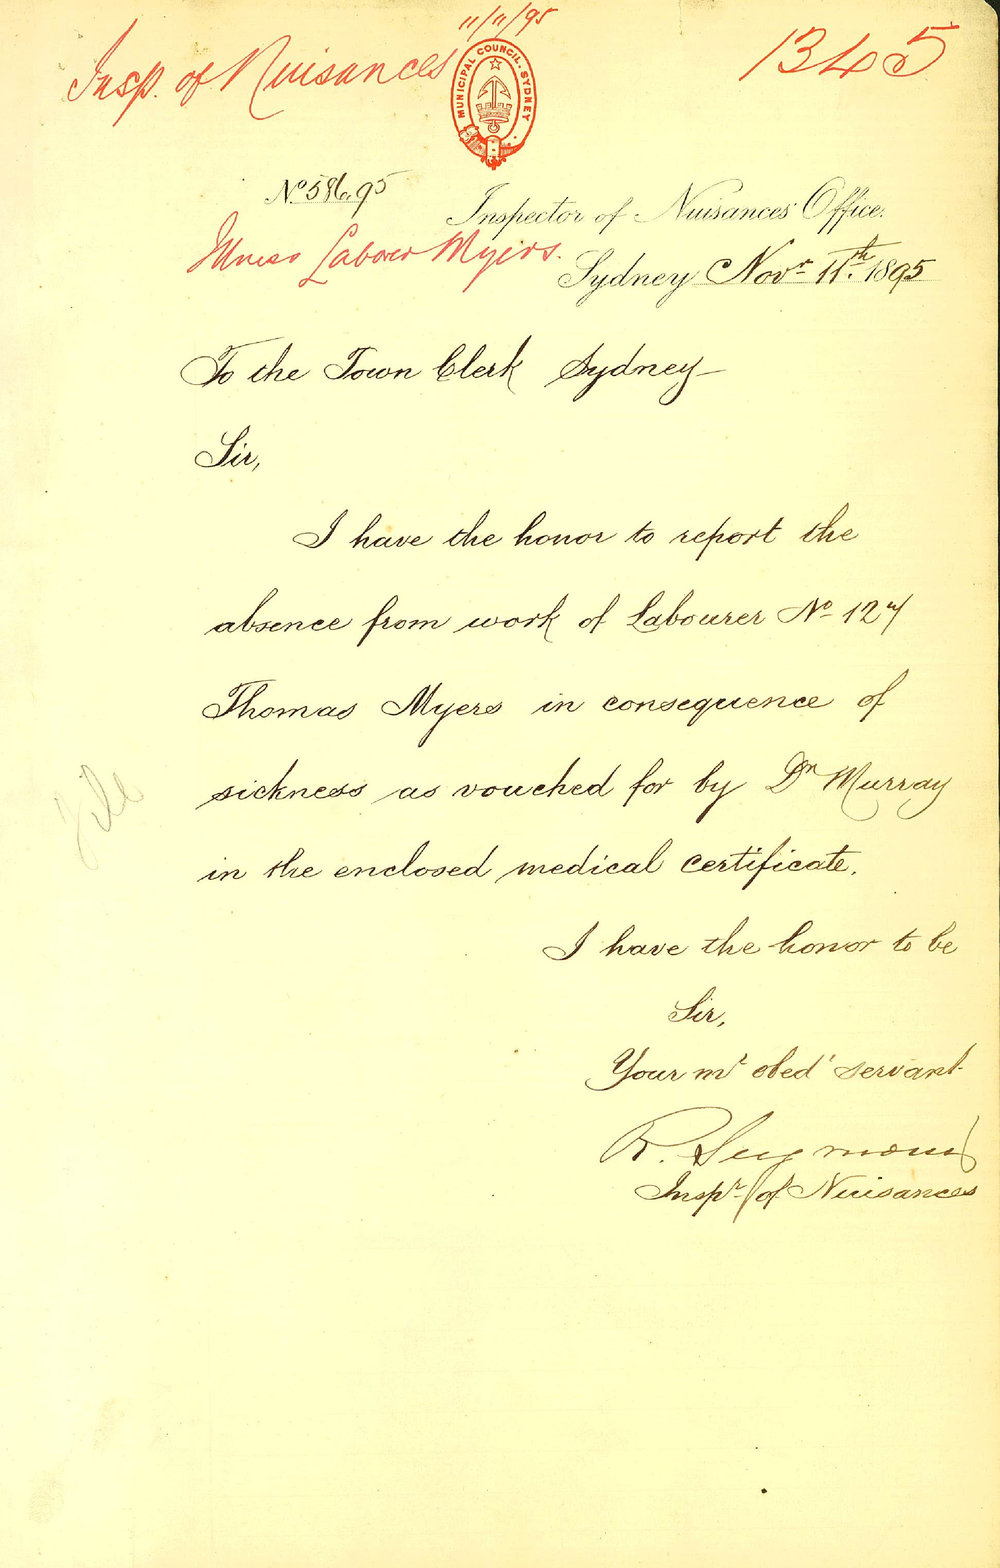 11/11/95
Insp. of Nuisances
1345
MUNICIPAL COUNCIL. SYDNEY
No 586. 95
Inspector of Nuisances' Office.
Illness Laborer Myers.
Sydney Novr 11th 1895
To the Town Clerk Sydney—
Sir,
I have the honor to report the
absence from work of Labourer No 127
Thomas Myers in consequence of
sickness as vouched for by Dr Murray
in the enclosed medical certificate.
File
I have the honor to be
Sir,
Your mt obedt servant
R. Seymour
Inspr of Nuisances